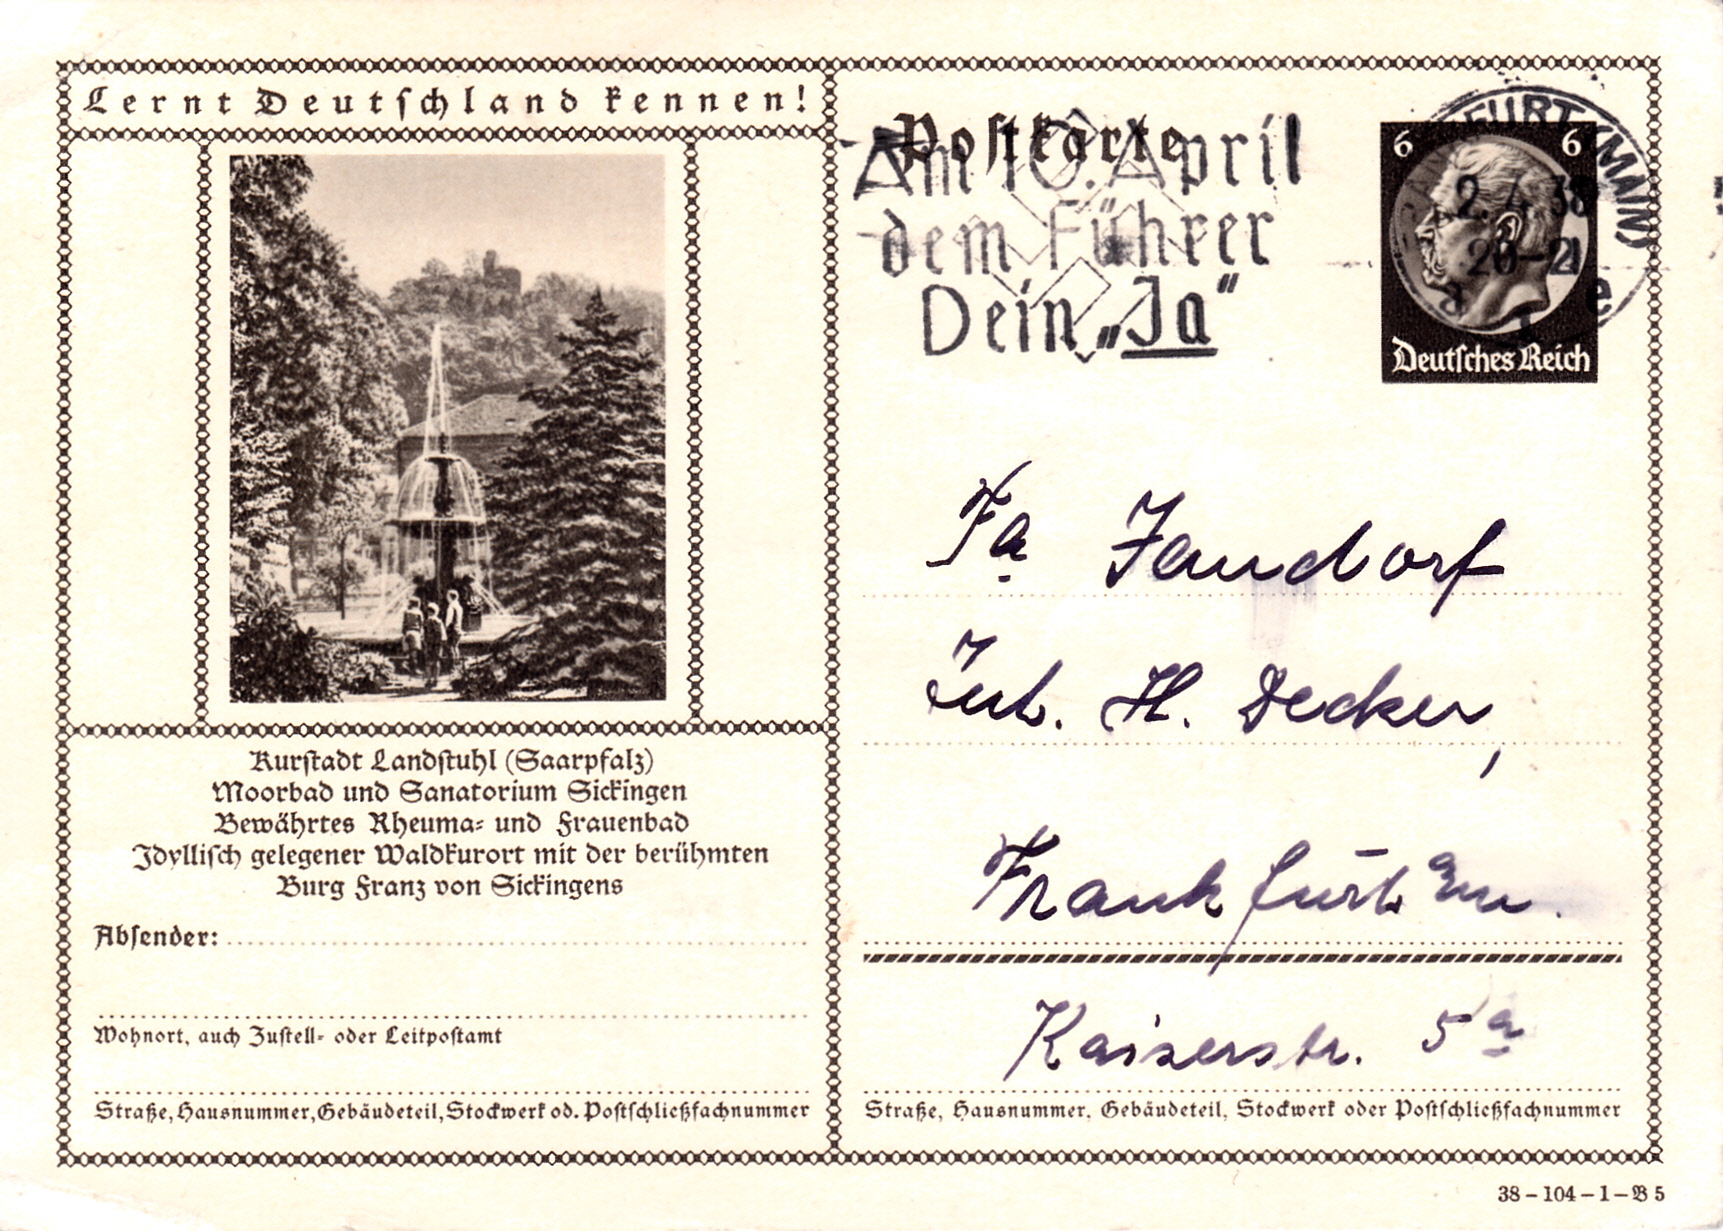 Lernt Deutschland kennen!
Kurstadt Landstuhl (Saarpfalz)
Moorbad und Sanatorium Sickingen
Bewährtes Rheuma- und Frauenbad
Idyllisch gelegener Waldkurort mit der berühmten
Burg Franz von Sickingens
Absender:
Wohnort, auch Zustell- oder Leitpostamt
Straße, Hausnummer, Gebäudeteil, Stockwerk od. Postschließfachnummer
Postkarte
Am 10. April
dem Führer
Dein „Ja“
6 6
Deutsches Reich
FURT (MAIN)
2. 4. 38
20-21
e
Fa Jandorf
Inh. H. Decker,
Frankfurt a/M.
Kaiserstr. 5a
Straße, Hausnummer, Gebäudeteil, Stockwerk oder Postschließfachnummer
38-104-1-B 5